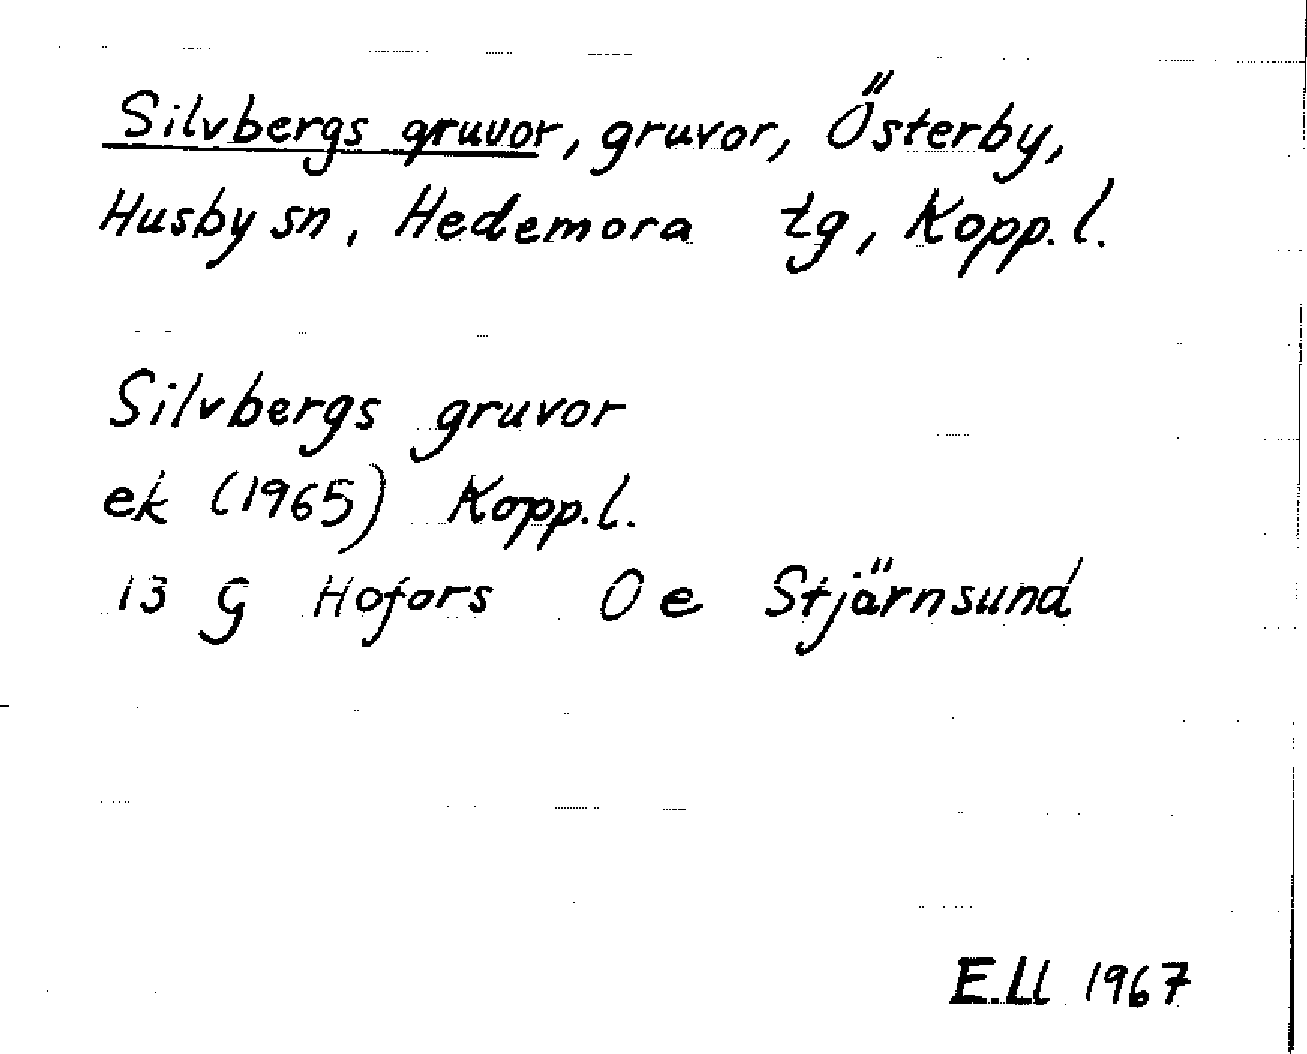 Silvbergs gruvor, gruvor, Österby,
Husby sn, Hedemora tg, Kopp.l.
Silvbergs gruvor
ek (1965) Kopp.l.
13 G Hofors 0 e Stjärnsund
E.Ll 1967